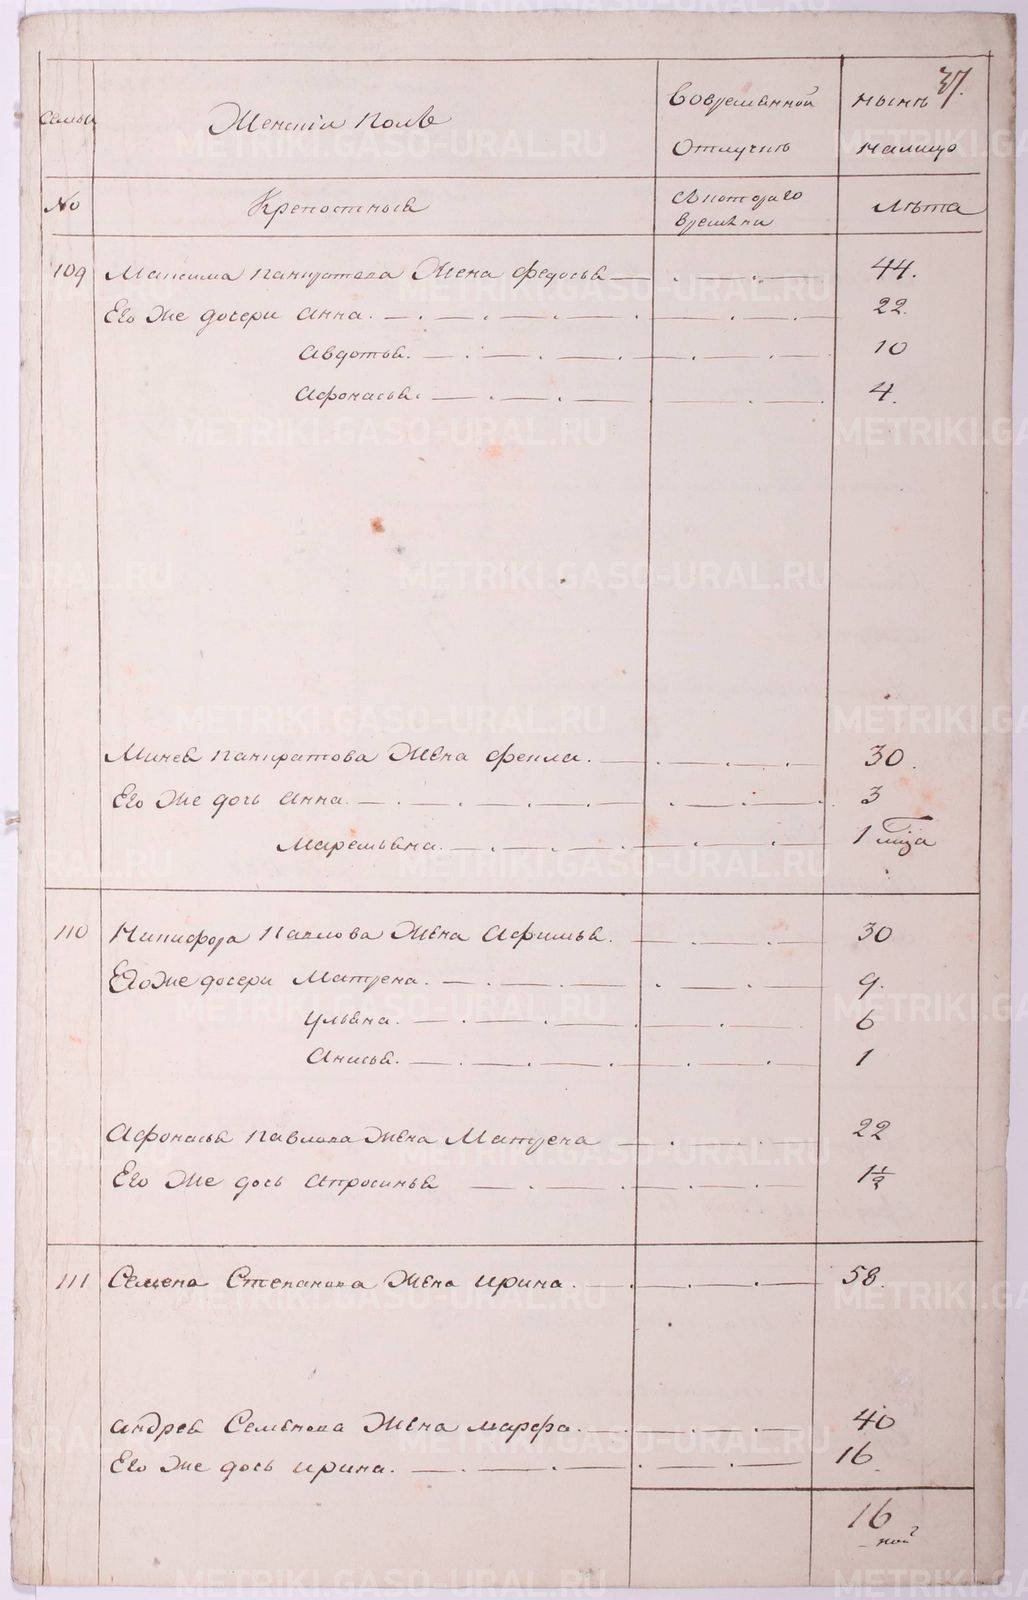 37.
Семьи Женскiй полъ Вовременной ныне
Отлучке налицо
No Крепостныя Съкотораго Лета
времени
109 Максима панкратова Жена федосья 44.
Его Же дочери анна. 22.
Авдотья. 10
Афонасья. 4.
Михея панкратова Жена фекла. 30.
Его Же дочь анна. 3
Маремьяна. 1
110 Никифора Павлова Жена Афимья. 30
Его Же дочери Матрена. 9.
Ульяна. 6
Анисья. 1
Афонасья павлова Жена Матрена 22
Его Же дочь апросинья 1½
111 Семена Степанова Жена ирина. 58.
андрея Семенова Жена марфа. 40
Его Же дочь ирина. 16
16
METRIKI.GASO-URAL.RU